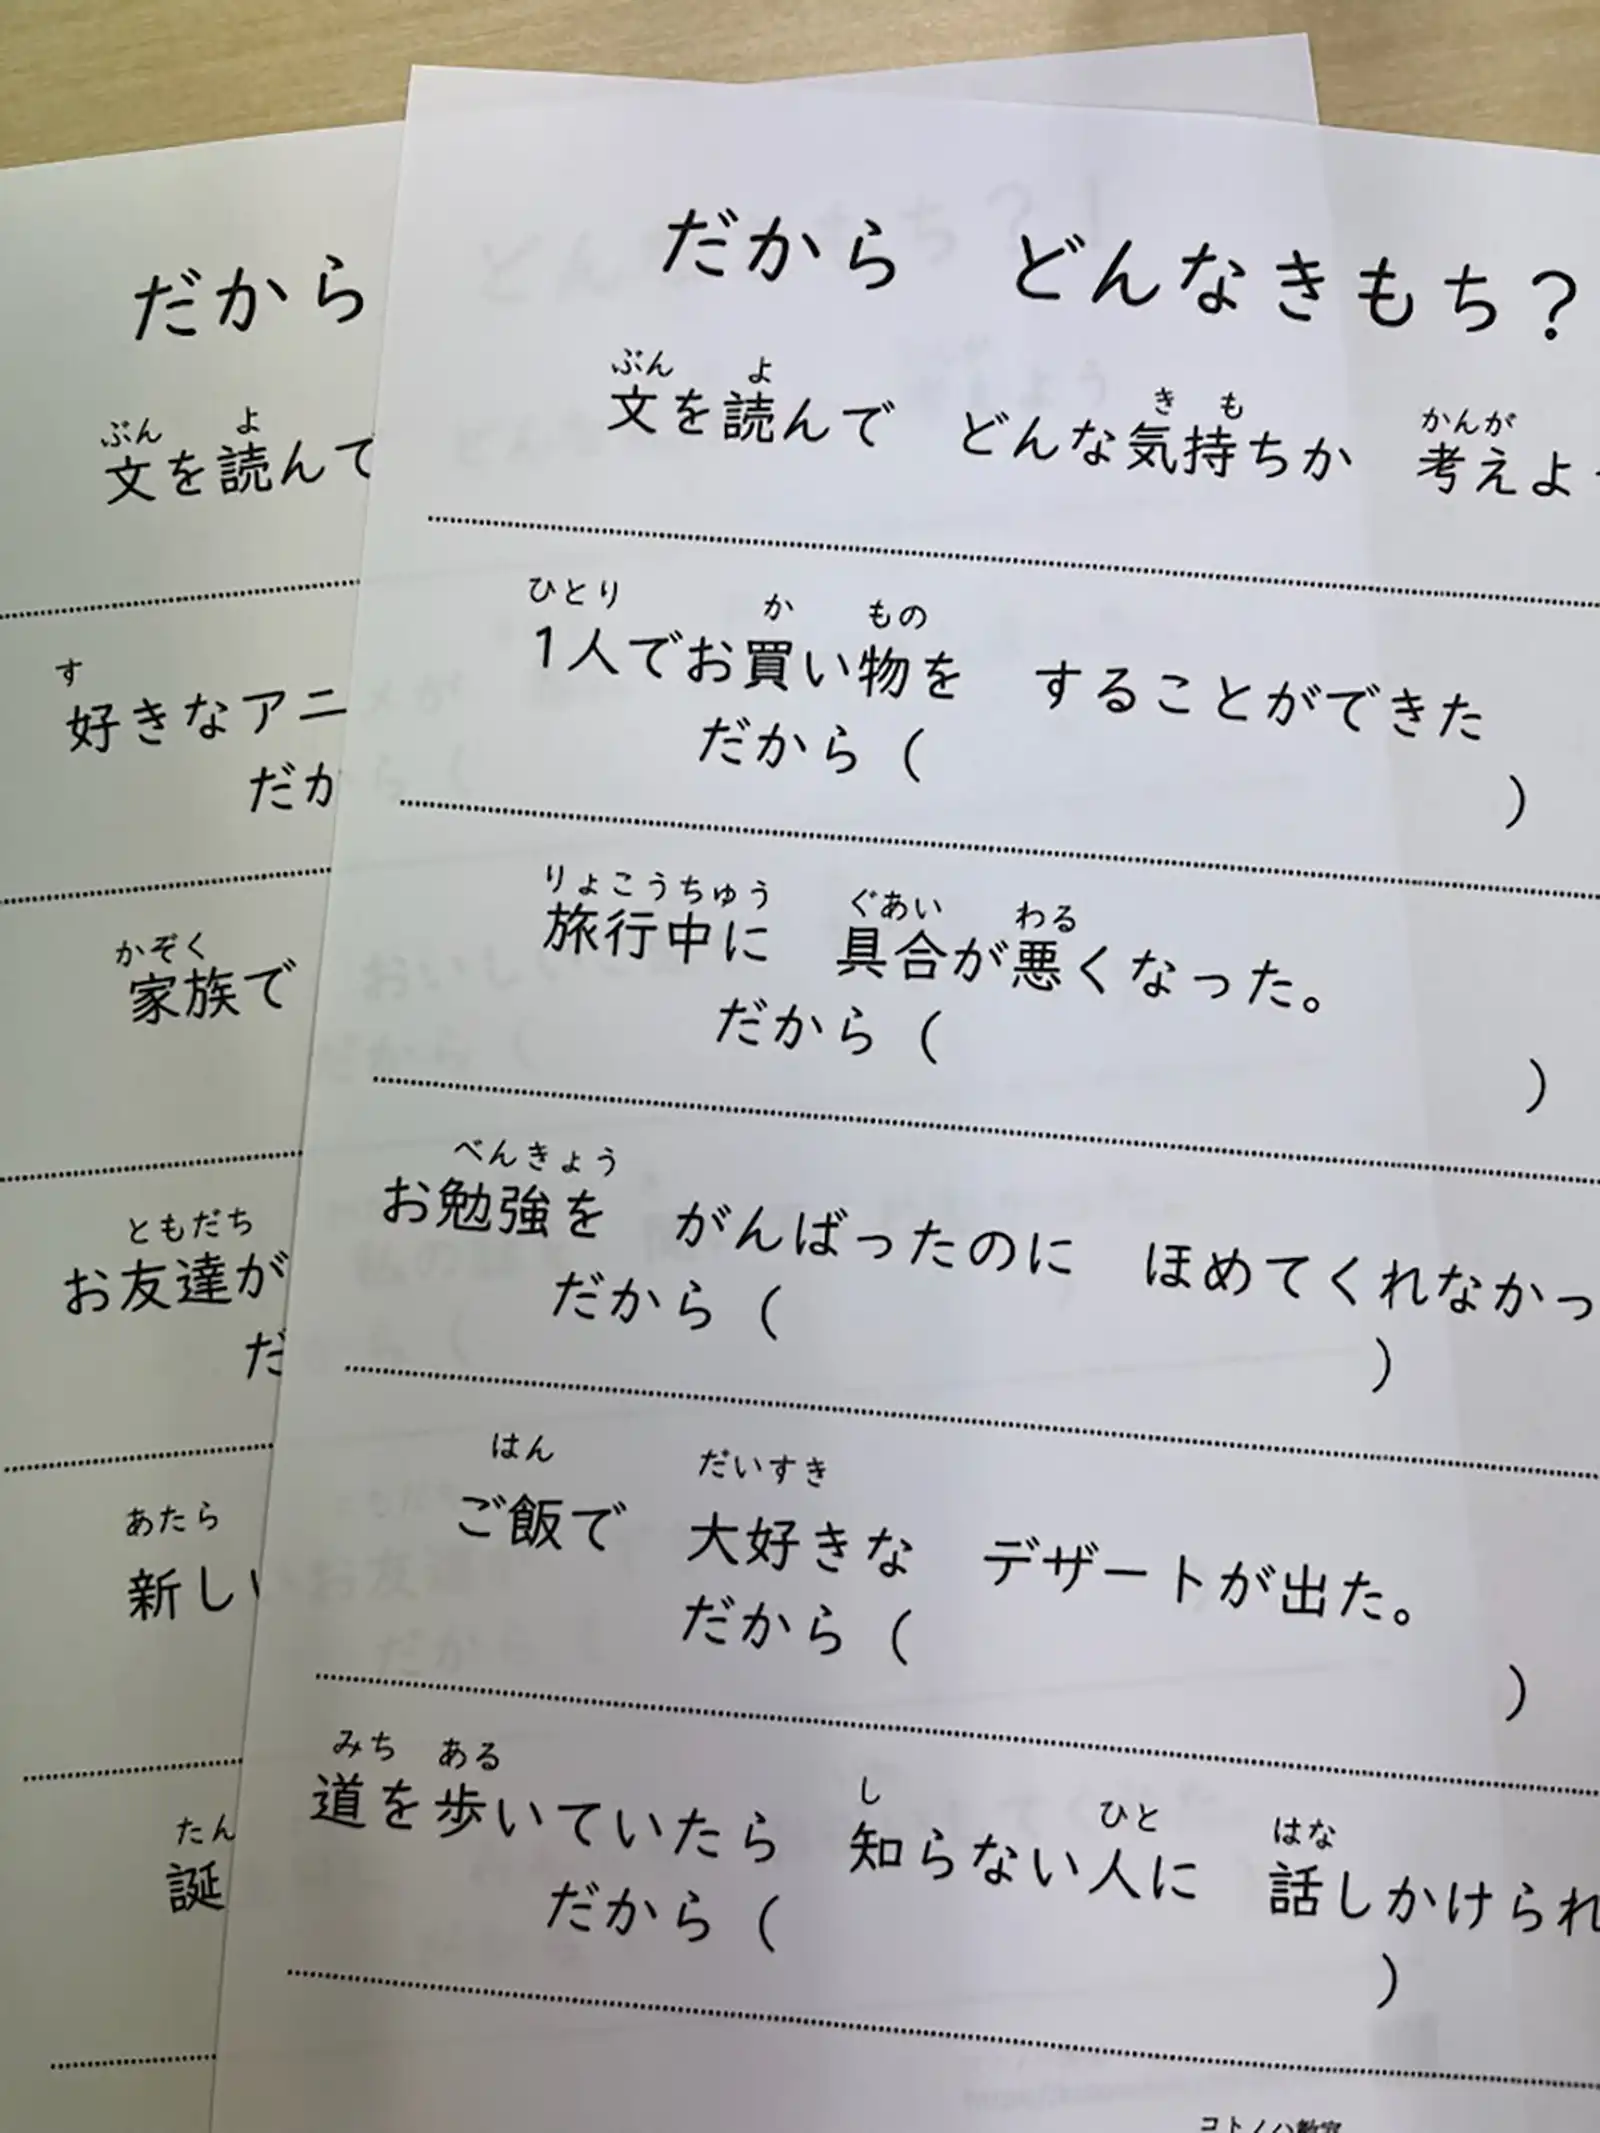 だから どんなきもち?
ぶん よ き も かんが
文を読んで どんな気持ちか 考えよ
ひとり か もの
1人でお買い物を することができた
だから ( )
りょこうちゅう ぐあい わる
旅行中に 具合が悪くなった。
だから ( )
べんきょう
お勉強を がんばったのに ほめてくれなかっ
だから ( )
はん だいすき
ご飯で 大好きな デザートが出た。
だから ( )
みち ある し ひと はな
道を歩いていたら 知らない人に 話しかけられ
だから ( )
コトノハ教室
だから
ぶん よ
文を読んで
す
好きなアニ
だか
かぞく
家族で
ともだち
お友達が
だ
あたら
新しい
たん
誕